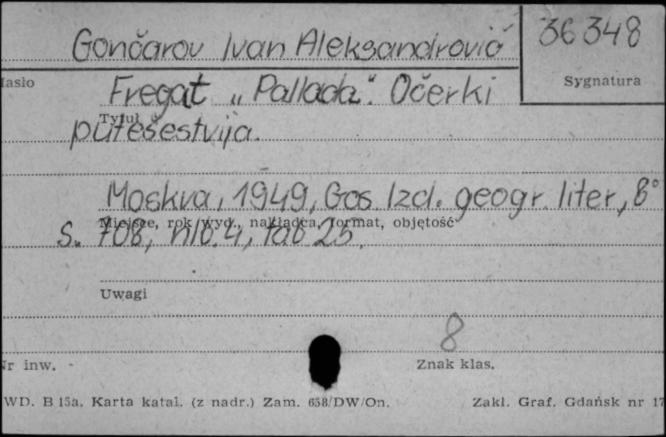 Gončarov Ivan Aleksandrovič
36348
Sygnatura
Hasło
Fregat „Pallada". Očerki
Tytuł
putešestvija.
Moskva, 1949, Gos. Izd. geogr. liter, 8°
Miejsce, rok wyd., nakładca, format, objętość
s. 708, nlb. 4, tab 25.
Uwagi
8
Nr inw.
Znak klas.
WD. B 15a. Karta katal. (z nadr.) Zam. 658/DW/On.
Zakł. Graf. Gdańsk nr 17